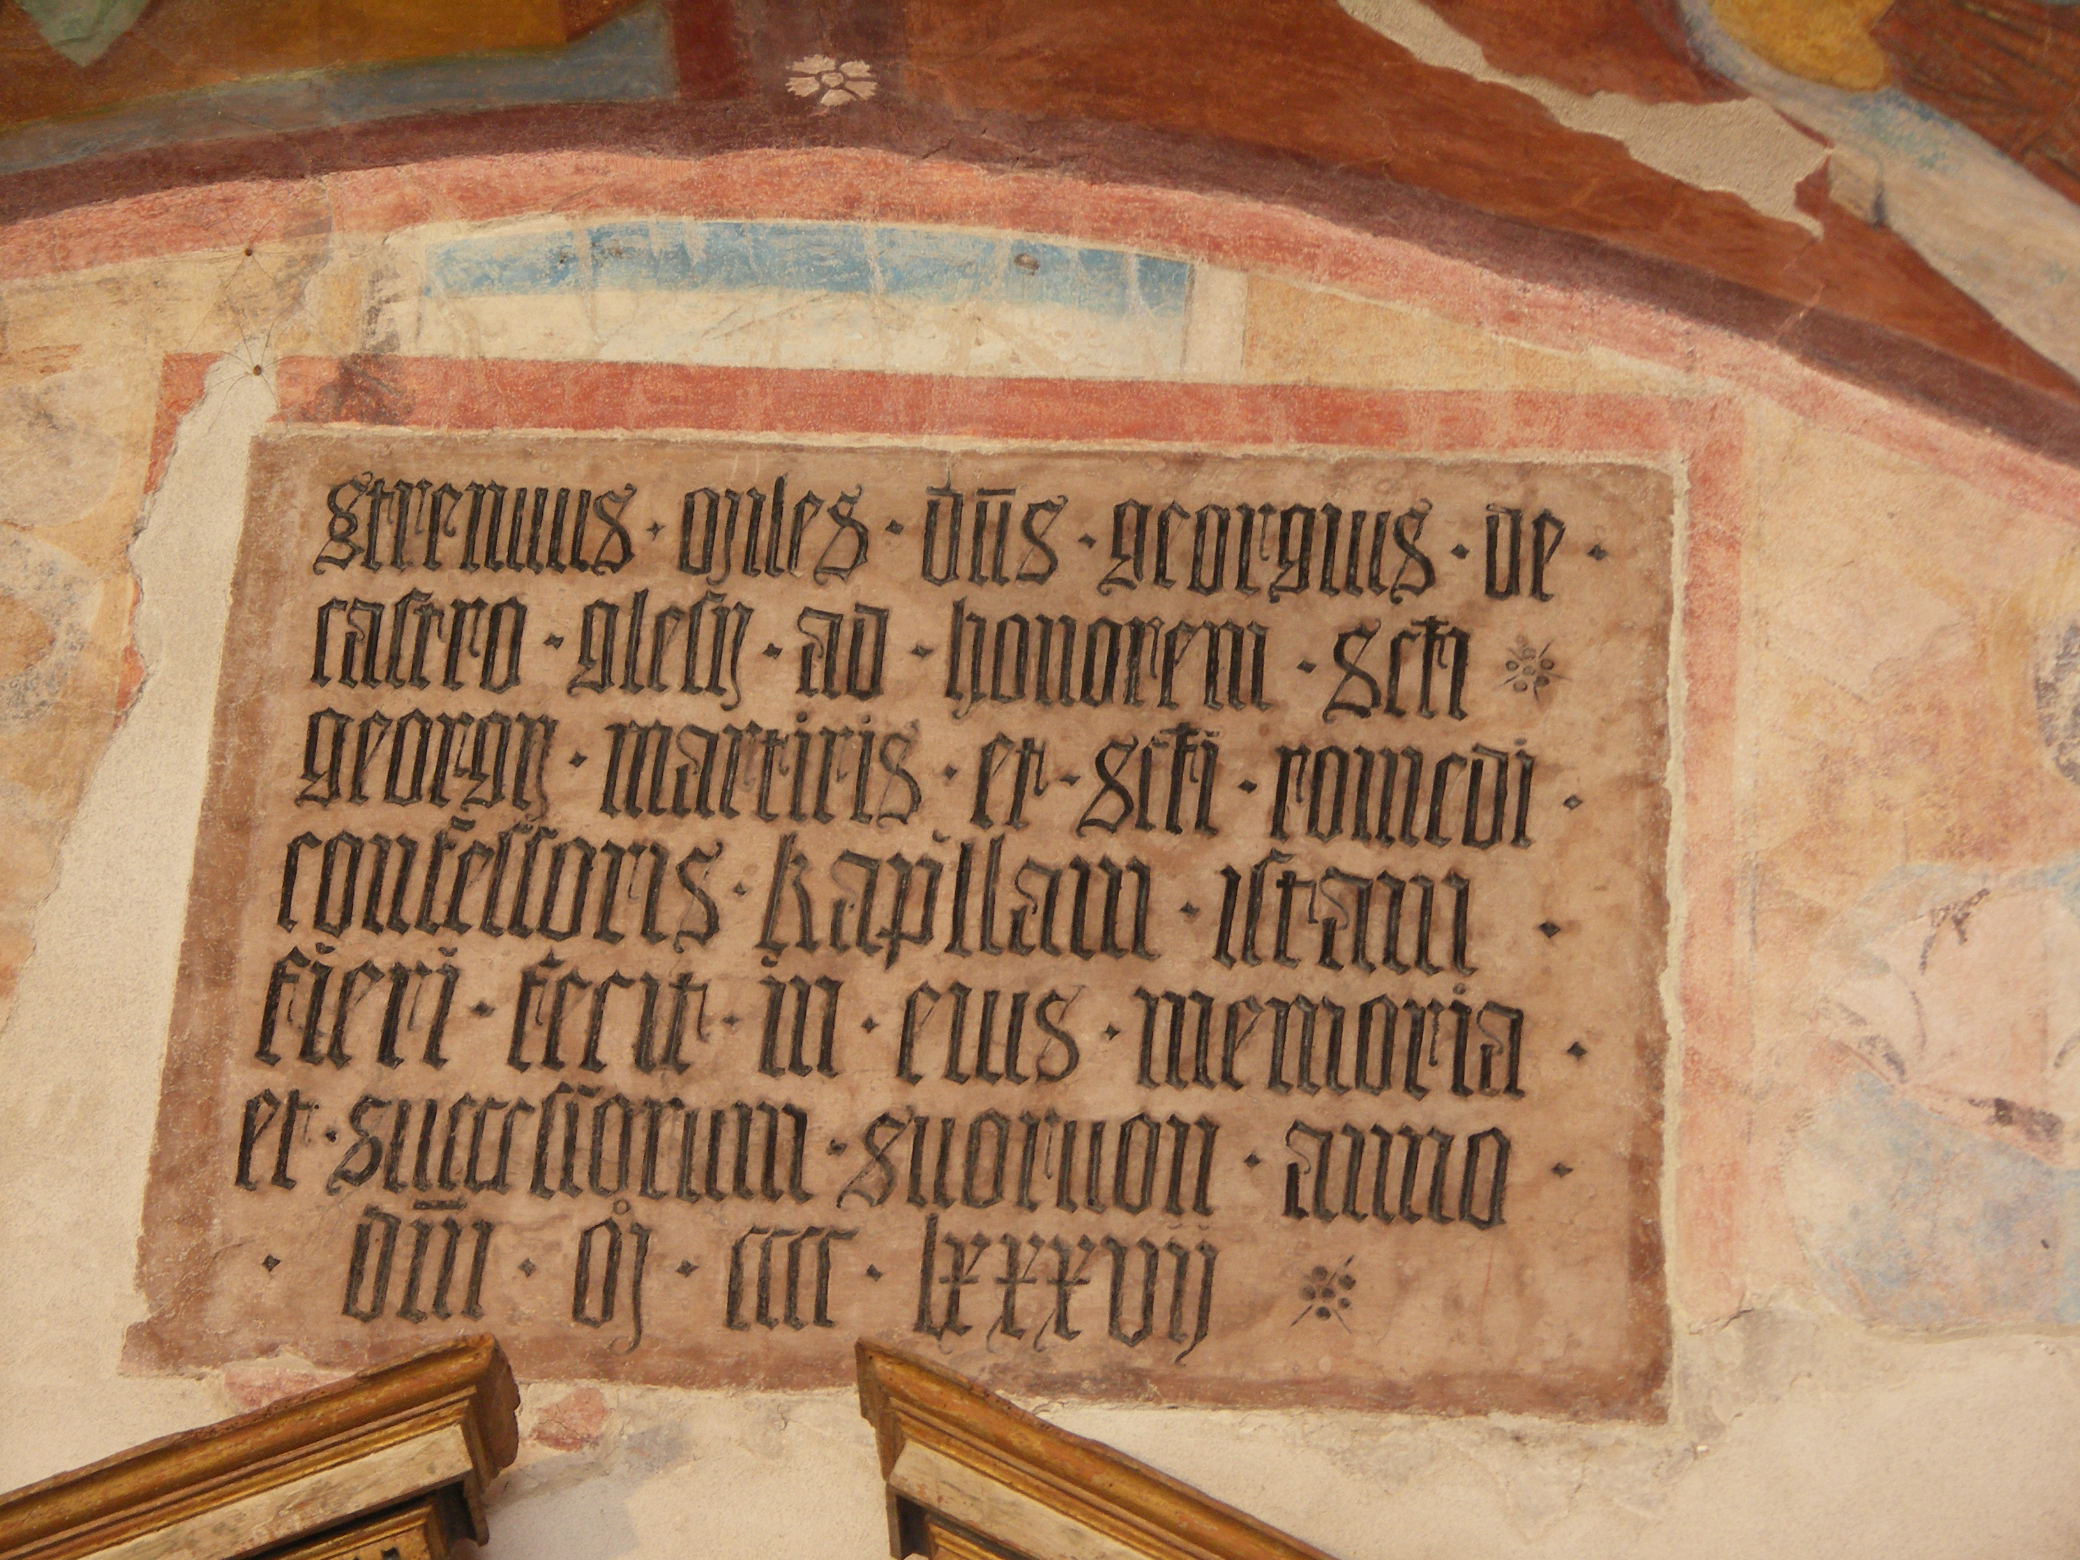 Strenuus · Miles · dn̄s · georgius · de ·
castro · glesij · ad · honorem · Scti
georgij · martiris · et · Scti · romedi ·
confessoris · kapillam · istam ·
fieri · fecit · in · eius · memoria ·
et · successorum · suoruon · anno ·
· dn̄i · Mͦ · cccc · lxxxvij